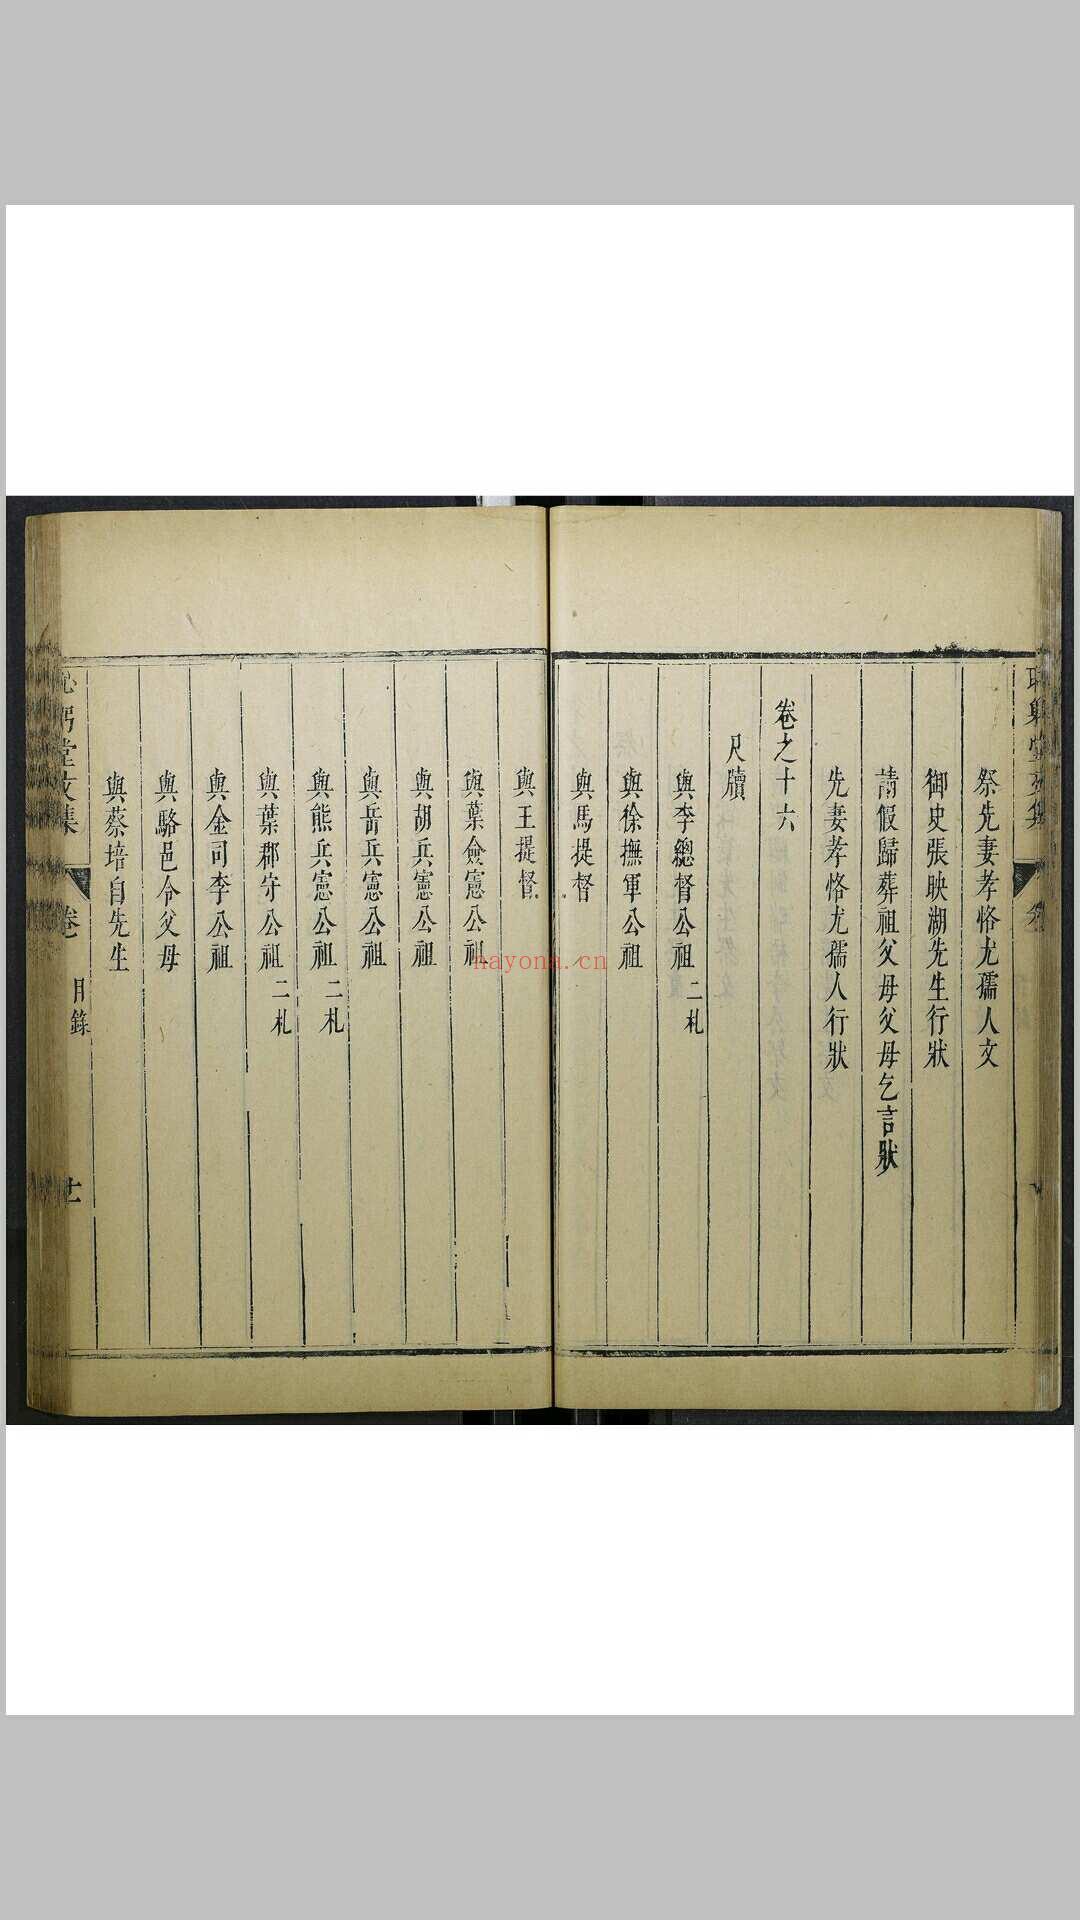 祭先妻孝恪尤孺人文
御史張映湖先生行狀
請假歸葬祖父母父母乞言狀
先妻孝恪尤孺人行狀
卷之十六
尺牘
與李總督公祖 二札
與徐撫軍公祖
與馬提督
與王提督
與葉僉憲公祖
與胡兵憲公祖
與岳兵憲公祖
與熊兵憲公祖 二札
與葉郡守公祖 二札
與金司李公祖
與駱邑令父母
與蔡培自先生
堂文集 卷 目錄
nayona.cn